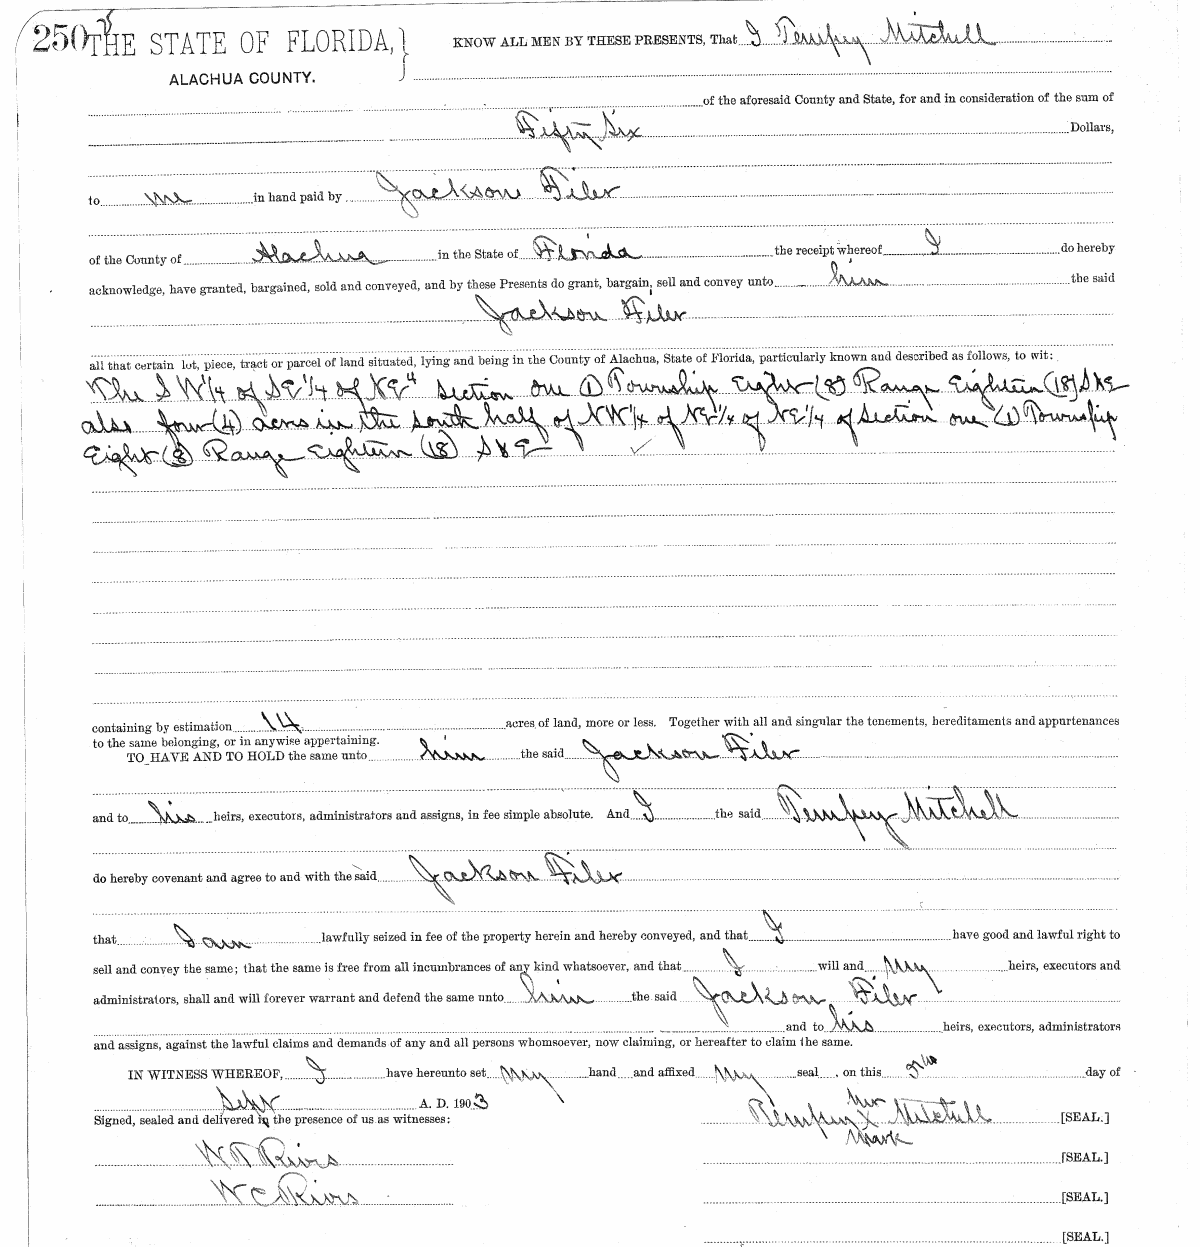 250
THE STATE OF FLORIDA,
ALACHUA COUNTY.
KNOW ALL MEN BY THESE PRESENTS, That I Tempey Mitchell
of the aforesaid County and State, for and in consideration of the sum of
Fifty Six Dollars,
to me in hand paid by Jackson Filer
of the County of Alachua in the State of Florida the receipt whereof I do hereby
acknowledge, have granted, bargained, sold and conveyed, and by these Presents do grant, bargain, sell and convey unto him the said
Jackson Filer
all that certain lot, piece, tract or parcel of land situated, lying and being in the County of Alachua, State of Florida, particularly known and described as follows, to wit:
The S W 1/4 of S E 1/4 of N E 4 Section one (1) Township Eight (8) Range Eighteen (18) S & E
also four (4) acres in the south half of N W 1/4 of N E 1/4 of N E 1/4 of Section one (1) Township
Eight (8) Range Eighteen (18) S & E
containing by estimation 14 acres of land, more or less. Together with all and singular the tenements, hereditaments and appurtenances
to the same belonging, or in anywise appertaining.
TO HAVE AND TO HOLD the same unto him the said Jackson Filer
and to his heirs, executors, administrators and assigns, in fee simple absolute. And I the said Tempey Mitchell
do hereby covenant and agree to and with the said Jackson Filer
that I am lawfully seized in fee of the property herein and hereby conveyed, and that I have good and lawful right to
sell and convey the same; that the same is free from all incumbrances of any kind whatsoever, and that I will and my heirs, executors and
administrators, shall and will forever warrant and defend the same unto him the said Jackson Filer
and to his heirs, executors, administrators
and assigns, against the lawful claims and demands of any and all persons whomsoever, now claiming, or hereafter to claim the same.
IN WITNESS WHEREOF, I have hereunto set my hand and affixed my seal , on this day of
Sept A. D. 1903
Signed, sealed and delivered in the presence of us as witnesses:
her
Tempey X Mitchell [SEAL.]
mark
W T Rivs [SEAL.]
W C Rivs [SEAL.]
[SEAL.]